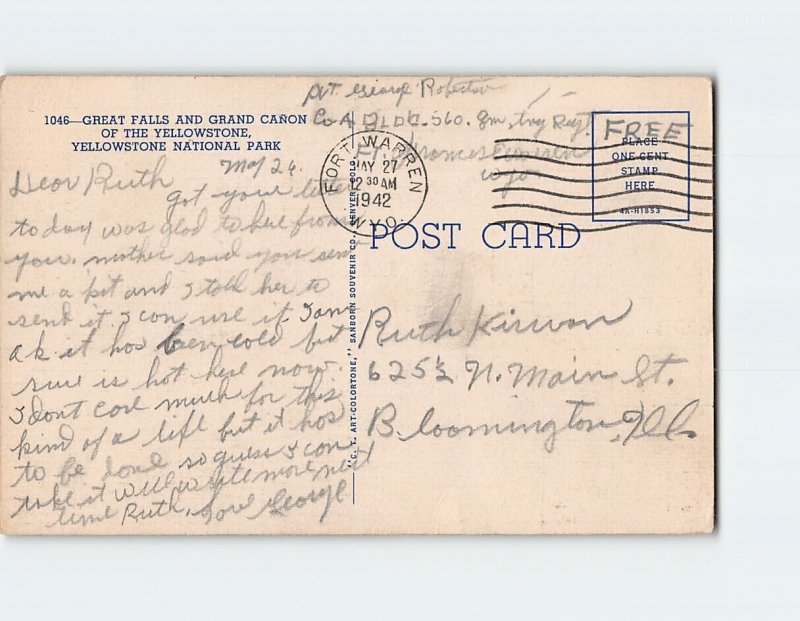 Pvt. George Robertson
Co A Bldg. 560. Qm. Trg Regt
Ft. Francis E Warren
Wyo
1046—GREAT FALLS AND GRAND CAÑON
OF THE YELLOWSTONE,
YELLOWSTONE NATIONAL PARK
FORT WARREN
MAY 27
12 30 AM
1942
WYO.
FREE
PLACE
ONE CENT
STAMP
HERE
4A-H1853
May 26.
Dear Ruth
got your letter
today was glad to hear from
you. mother said you sent
me a kit and I told her to
send it I can use it. I am
ok it has been cold but
sure is hot here now.
I dont care much for this
kind of a life but it has
to be done so guess I can
take it will write more next
time Ruth, Love George
"C. T. ART-COLORTONE," SANBORN SOUVENIR CO., DENVER, COLO.
POST CARD
Ruth Kirwan
625½ N. Main St.
Bloomington, Ill.